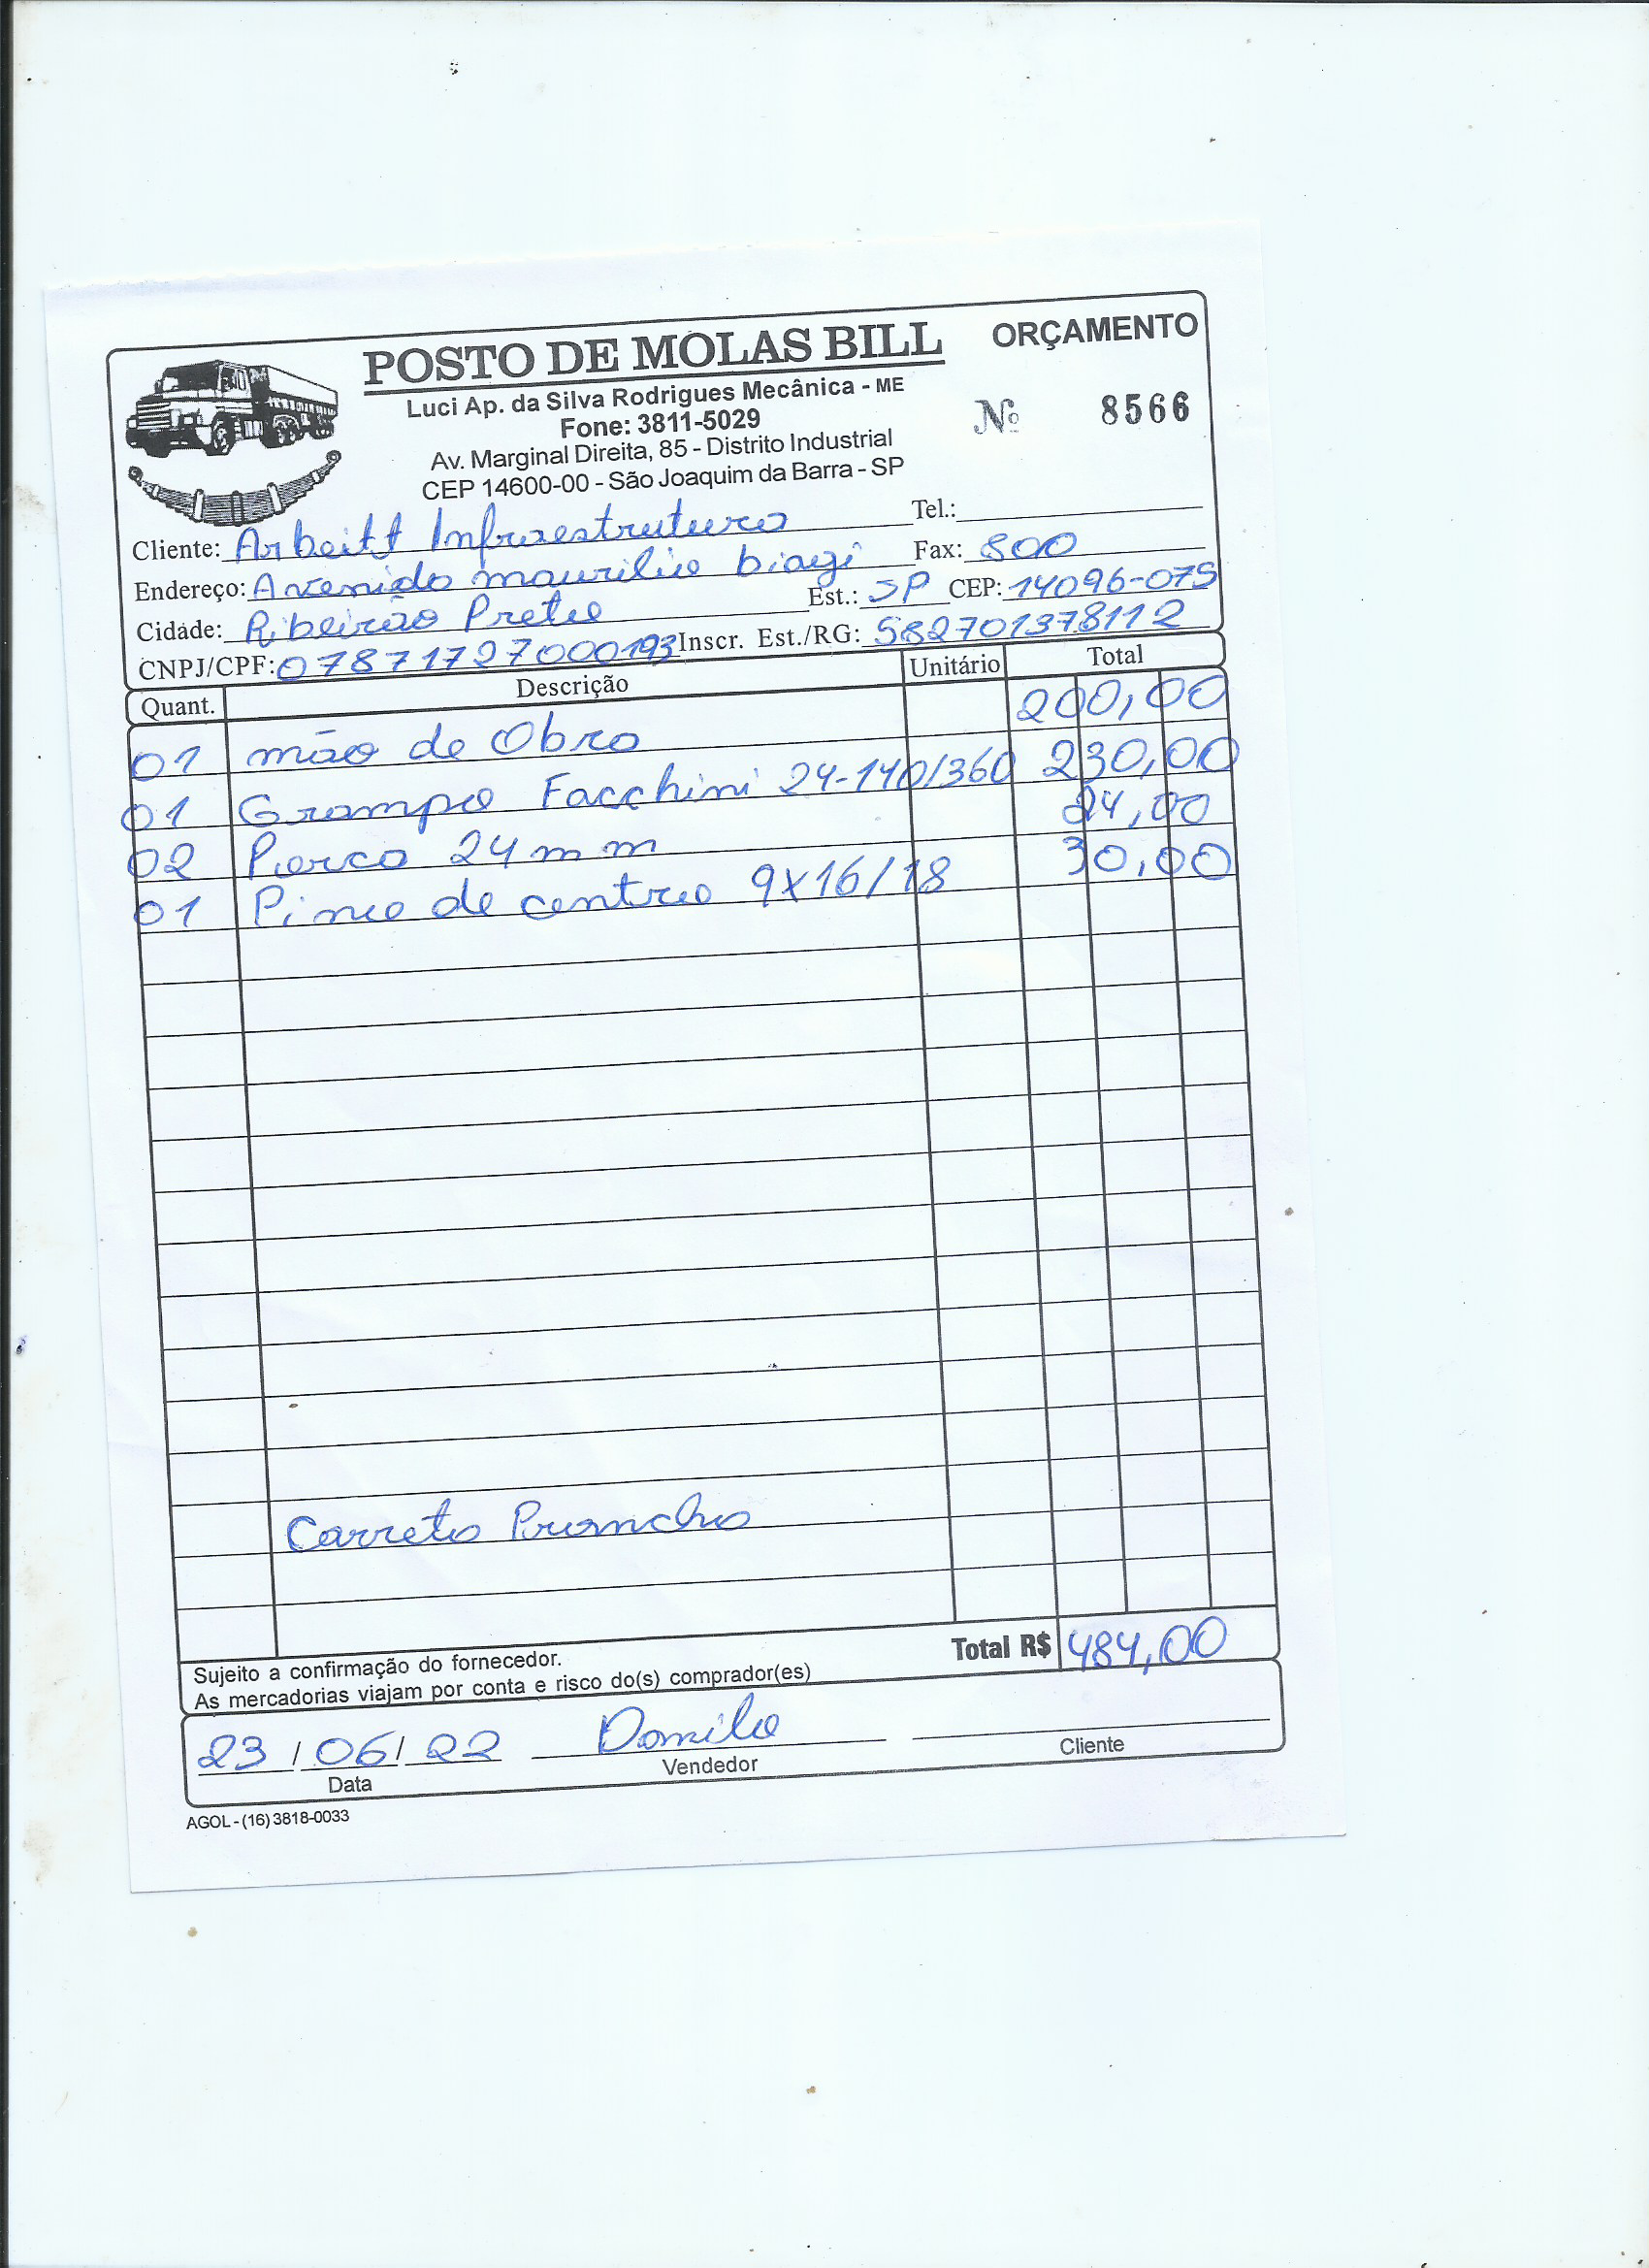 POSTO DE MOLAS BILL
ORÇAMENTO
Luci Ap. da Silva Rodrigues Mecânica - ME
Fone: 3811-5029
Nº 8566
Av. Marginal Direita, 85 - Distrito Industrial
CEP 14600-00 - São Joaquim da Barra - SP
Cliente: Arbeitt Infraestrutura Tel.:
Endereço: Avenida maurilio biagi Fax: 800
Cidade: Ribeirão Preto Est.: SP CEP: 14096-075
CNPJ/CPF: 07871727000193 Inscr. Est./RG: 582701378112
Quant. Descrição Unitário Total
01 mão de Obra 200,00
01 Grampo Facchini 24-140/360 230,00
02 Porca 24mm 24,00
01 Pino de centro 9X16/18 30,00
Carreta Prancha
Sujeito a confirmação do fornecedor.
As mercadorias viajam por conta e risco do(s) comprador(es)
Total R$ 484,00
23/06/22 Danilo
Data Vendedor Cliente
AGOL - (16) 3818-0033